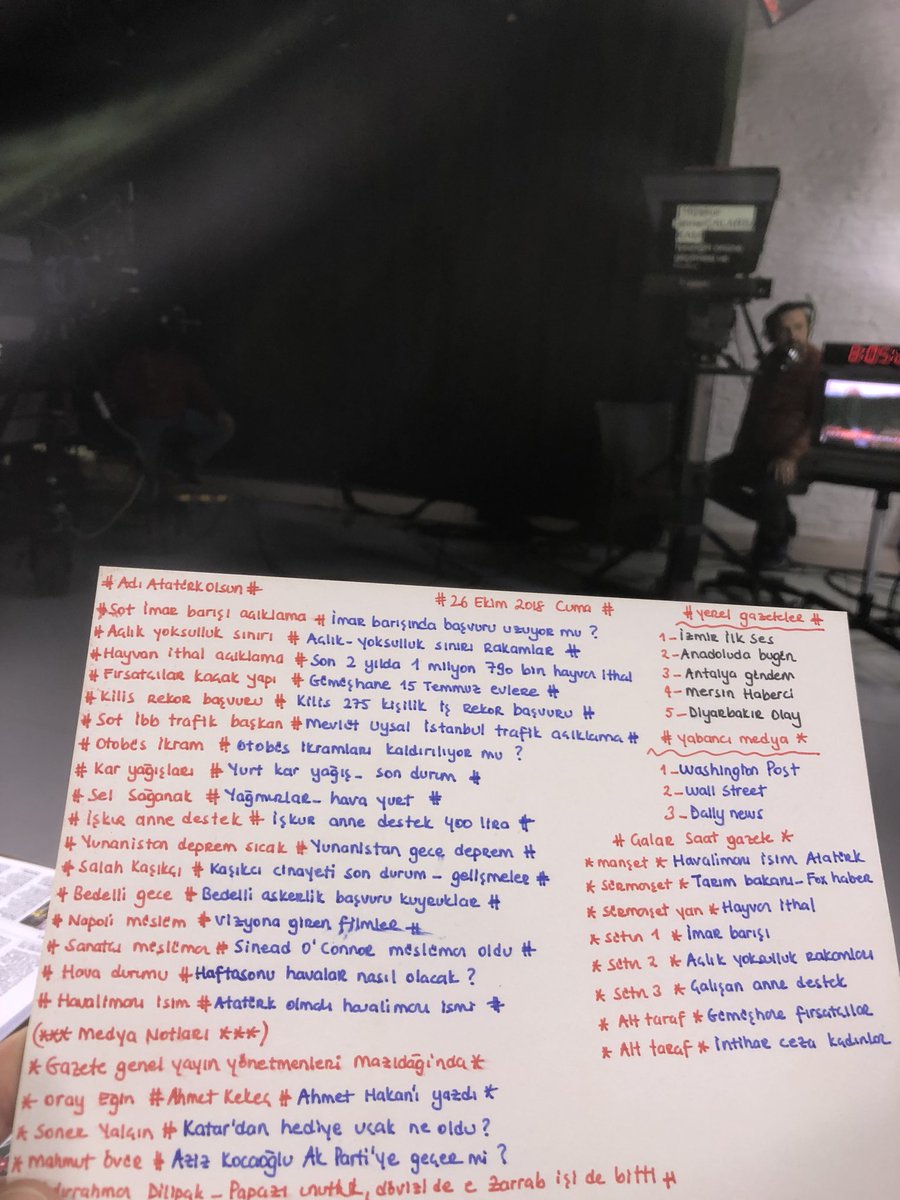 8:05
# Adı Atatürk Olsun #
# 26 Ekim 2018 Cuma #
# Sot İmar barışı açıklama # İmar barışında başvuru uzuyor mu ?
# Açlık yoksulluk sınırı # Açlık-yoksulluk sınırı Rakamlar #
# Hayvan ithal açıklama # Son 2 yılda 1 milyon 790 bin hayvan ithal
# Fırsatçılar kaçak yapı # Gümüşhane 15 Temmuz evlere #
# Kilis Rekor başvuru # Kilis 275 kişilik iş Rekor başvuru #
# Sot ibb trafik başkan # Mevlüt Uysal İstanbul trafik açıklama #
# Otobüs İkram # Otobüs İkramları kaldırılıyor mu ?
# Kar yağışları # Yurt kar yağış- son durum #
# Sel Sağanak # Yağmurlar- hava yurt #
# İşkur anne destek # İşkur anne destek 400 lira #
# Yunanistan deprem sıcak # Yunanistan gece deprem #
# Salah Kaşıkçı # Kaşıkcı cinayeti son durum - gelişmeler #
# Bedelli gece # Bedelli askerlik başvuru kuyruklar #
# Napoli müslüm # Vizyona giren filmler #
# Sanatcı müslüman # Sinead O'Connor müslüman oldu #
# Hava durumu # Haftasonu havalar nasıl olacak ?
# Havalimanı isim # Atatürk olmalı havalimanı ismi #
(*** Medya Notları ***)
* Gazete genel yayın yönetmenleri Mazıdağı'nda *
* Oray Eğin # Ahmet Kekeç # Ahmet Hakan'ı yazdı *
* Soner Yalçın # Katar'dan hediye uçak ne oldu ?
* Mahmut Övür # Aziz Kocaoğlu Ak Parti'ye geçer mi ?
Dilipak - Papazı unuttuk, dövizi de Zarrab işi de bitti #
# Yerel gazeteler #
1- İzmir İlk Ses
2- Anadoluda bugün
3- Antalya gündem
4- mersin Haberci
5- Diyarbakır Olay
# Yabancı medya *
1- Washington Post
2- Wall Street
3- Daily news
# Çalar Saat gazete *
* manşet * Havalimanı isim Atatürk
* sürmanşet * Tarım bakanı- Fox haber
* sürmanşet yan * Hayvan ithal
* sütun 1 * İmar barışı
* sütun 2 * Açlık yoksulluk rakamları
* sütun 3 * Çalışan anne destek
* Alt taraf * Gümüşhane fırsatçılar
* Alt taraf * İntihar ceza kadınlar